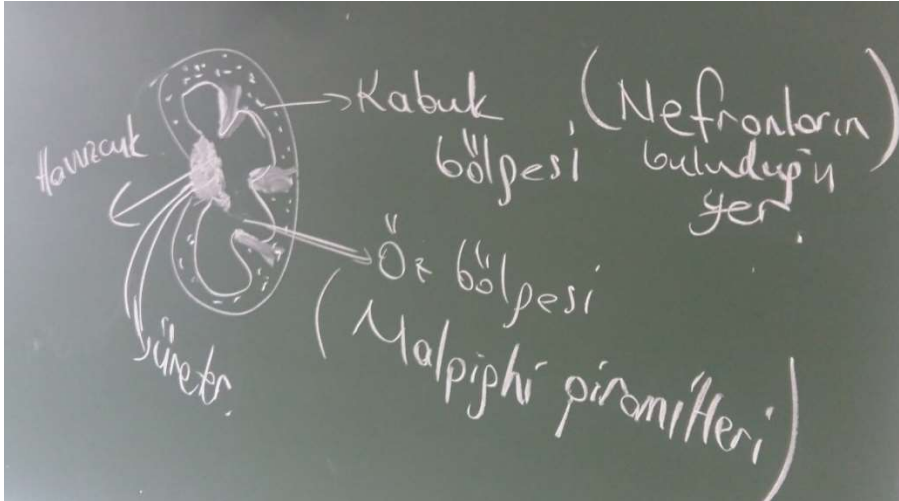 Havuzcuk
Kabuk
bölgesi
(Nefronların
bulunduğu
yer)
Öz bölgesi
(Malpighi piramitleri)
üreter